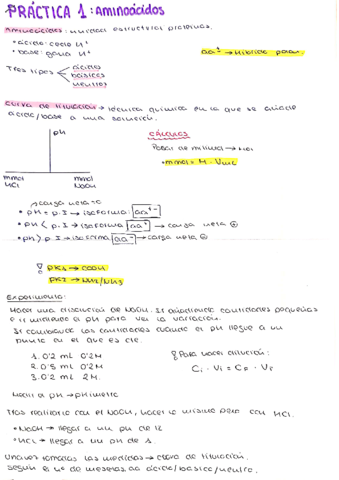 PRÁCTICA 1: Aminoácidos
Aminoácidos: unidad estructural proteínas.
• ácido: cede H⁺
• base: gana H⁺
aa± → Híbrido
Tres tipos
ácidos
básicos
neutros
Curva de titulación → técnica química en la que se añade
ácido/base a una solución.
pH
mmol
HCl
mmol
NaOH
cálculos
Pasar de ml → mol
• mmol = M · Vml
carga neta = 0
• pH = p.I → isoforma: aa⁺⁻
• pH < p.I → isoforma aa⁺ → carga neta ⊕
• pH > p.I → isoforma aa⁻ → carga neta
PK1 → COOH
PK2 → NH2/NH3
Experimento:
Hacer una disolución de NaOH. Ir añadiendo cantidades pequeñas
e ir midiendo el pH para ver la variación.
Ir cambiando las cantidades cuando el pH llegue a un
punto en el que es
1. 0'2 mL 0'2M
2. 0'5 mL 0'2M
3. 0'2 mL 2M.
Para hacer dilución:
Ci · Vi = CF · VF
Medir el pH → pHmetro
Tras realizarlo con el NaOH, hacer lo mismo pero con HCl.
• NaOH → llegar a un pH de 12
• HCl → llegar a un pH de 1.
Una vez tomadas las medidas → curva de titulación.
Según el nº de mesetas aa ácido/básico/neutro.